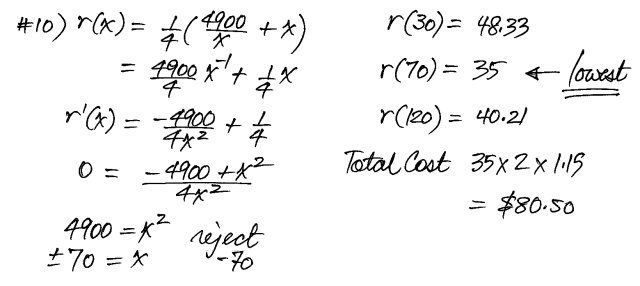 #10) r(x) = 1/4 (4900/x + x)
= 4900/4 x^-1 + 1/4 x
r'(x) = -4900/4x^2 + 1/4
0 = (-4900 + x^2)/4x^2
4900 = x^2
±70 = x reject -70
r(30) = 48.33
r(70) = 35 ← lowest
r(120) = 40.21
Total Cost 35 x 2 x 1.15
= $80.50